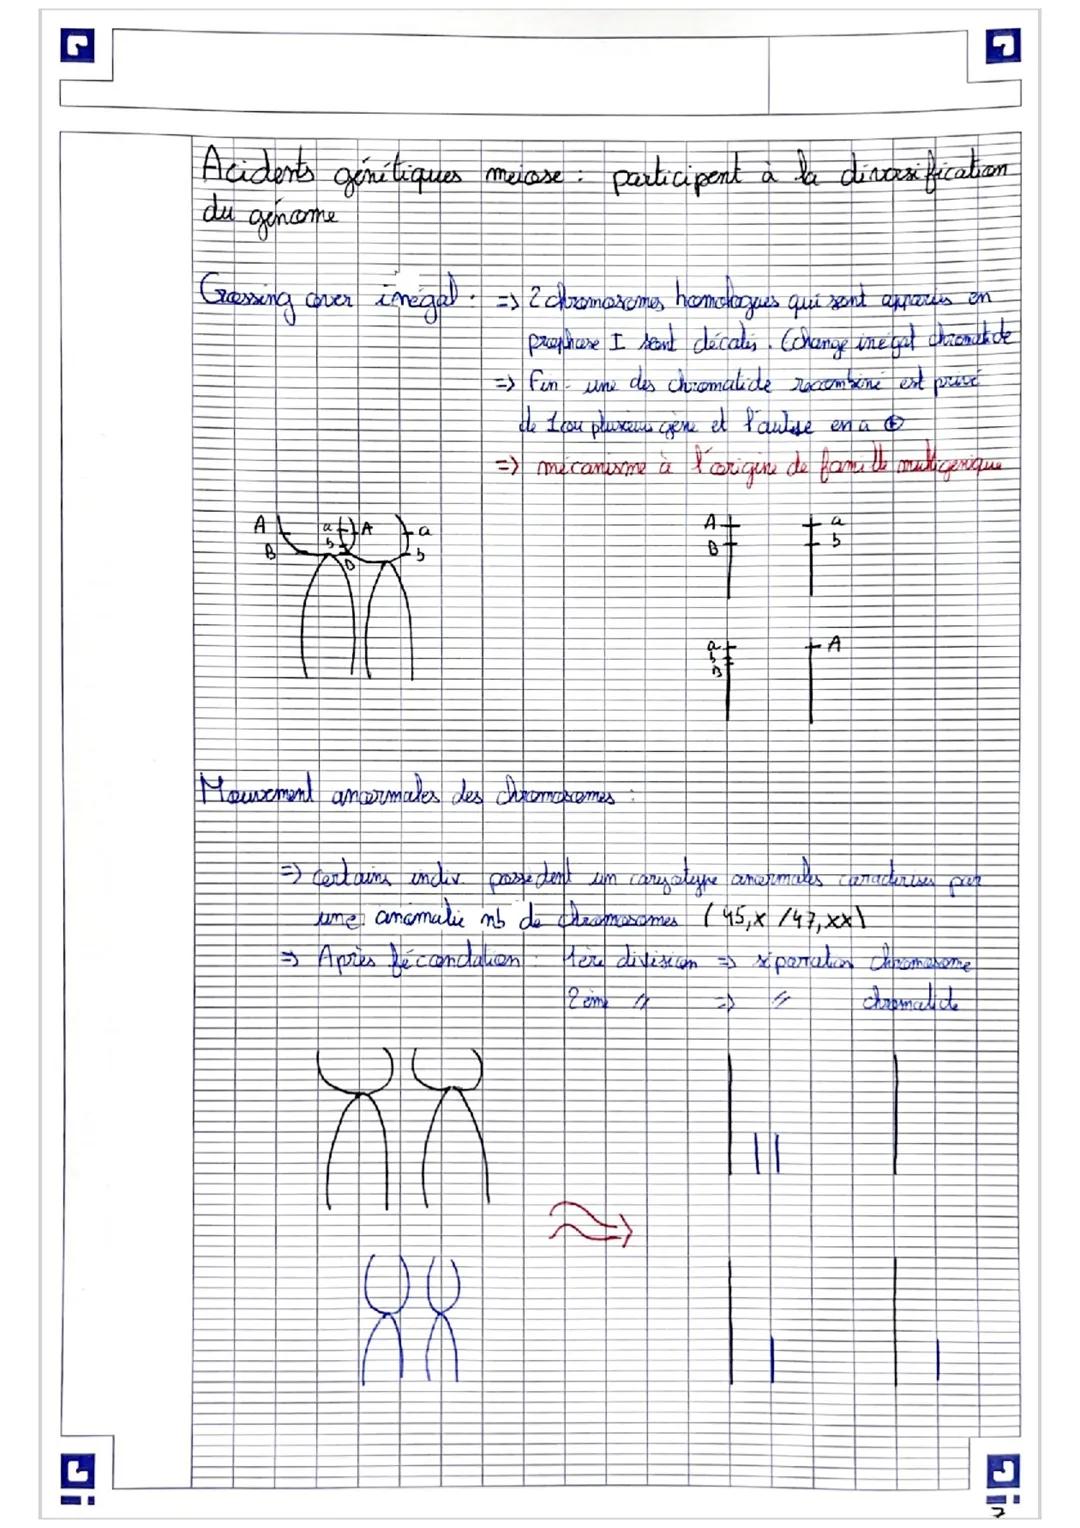 Acidents génétiques meiose : participent à la diversification
du génome
Crossing over inégal : => 2 chromosomes homologues qui sont appariés en
prophase I sont décalés. Echange inégal chromatide
=> Fin - une des chromatide recombiné est privé
de 1 ou plusieurs gène et l'autre en a +
=> mécanisme à l'origine de famille multigenique
A a A a
B b b
B
A a
B b
a A
b
B
Mouvement anormales des chromosomes :
=> certains indiv. possedent un caryotype anormales caractérisés par
une anomalie nb de chromosomes (45,X /47,XX)
=> Après fécondation : 1ère division => séparation chromosome
2ème " => " chromatide